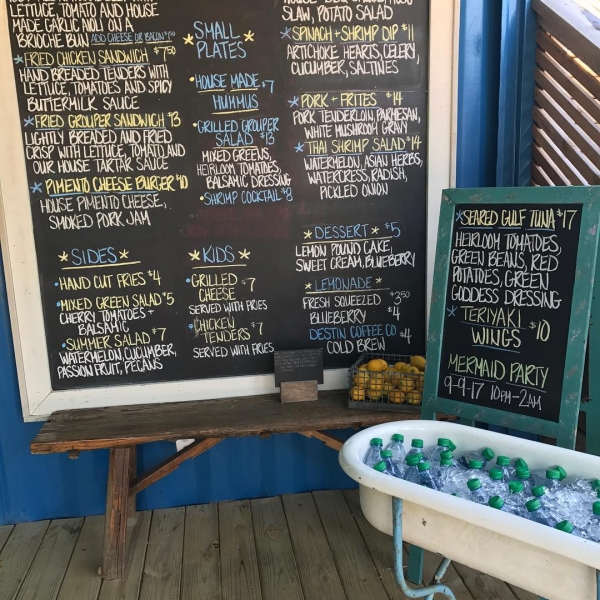 LETTUCE, TOMATO AND HOUSE
MADE GARLIC AIOLI ON A
BRIOCHE BUN ADD CHEESE OR BACON $1.50
*FRIED CHICKEN SANDWICH $7.50
HAND BREADED TENDERS WITH
LETTUCE, TOMATOES AND SPICY
BUTTERMILK SAUCE
*FRIED GROUPER SANDWICH $13
LIGHTLY BREADED AND FRIED
CRISP WITH LETTUCE, TOMATO AND
OUR HOUSE TARTAR SAUCE
*PIMENTO CHEESE BURGER $10
HOUSE PIMENTO CHEESE,
SMOKED PORK JAM
* SIDES *
• HAND CUT FRIES $4
• MIXED GREEN SALAD $5
CHERRY TOMATOES +
BALSAMIC
• SUMMER SALAD $7
WATERMELON, CUCUMBER,
PASSION FRUIT, PECANS
* SMALL PLATES *
• HOUSE MADE
HUMMUS $7
• GRILLED GROUPER
SALAD $13
MIXED GREENS,
HEIRLOOM TOMATOES,
BALSAMIC DRESSING
• SHRIMP COCKTAIL $8
* KIDS *
• GRILLED
CHEESE $7
SERVED WITH FRIES
• CHICKEN
TENDERS $7
SERVED WITH FRIES
SLAW, POTATO SALAD
*SPINACH + SHRIMP DIP $11
ARTICHOKE HEARTS, CELERY,
CUCUMBER, SALTINES
*PORK + FRITES $14
PORK TENDERLOIN, PARMESAN,
WHITE MUSHROOM GRAVY
*THAI SHRIMP SALAD $14
WATERMELON, ASIAN HERBS,
WATERCRESS, RADISH,
PICKLED ONION
* DESSERT * $5
LEMON POUND CAKE,
SWEET CREAM, BLUEBERRY
* LEMONADE *
FRESH SQUEEZED $3.50
BLUEBERRY $4
DESTIN COFFEE CO
COLD BREW $4
*SEARED GULF TUNA $17
HEIRLOOM TOMATOES,
GREEN BEANS, RED
POTATOES, GREEN
GODDESS DRESSING
* TERIYAKI
WINGS $10
MERMAID PARTY
9-9-17 10PM-2AM